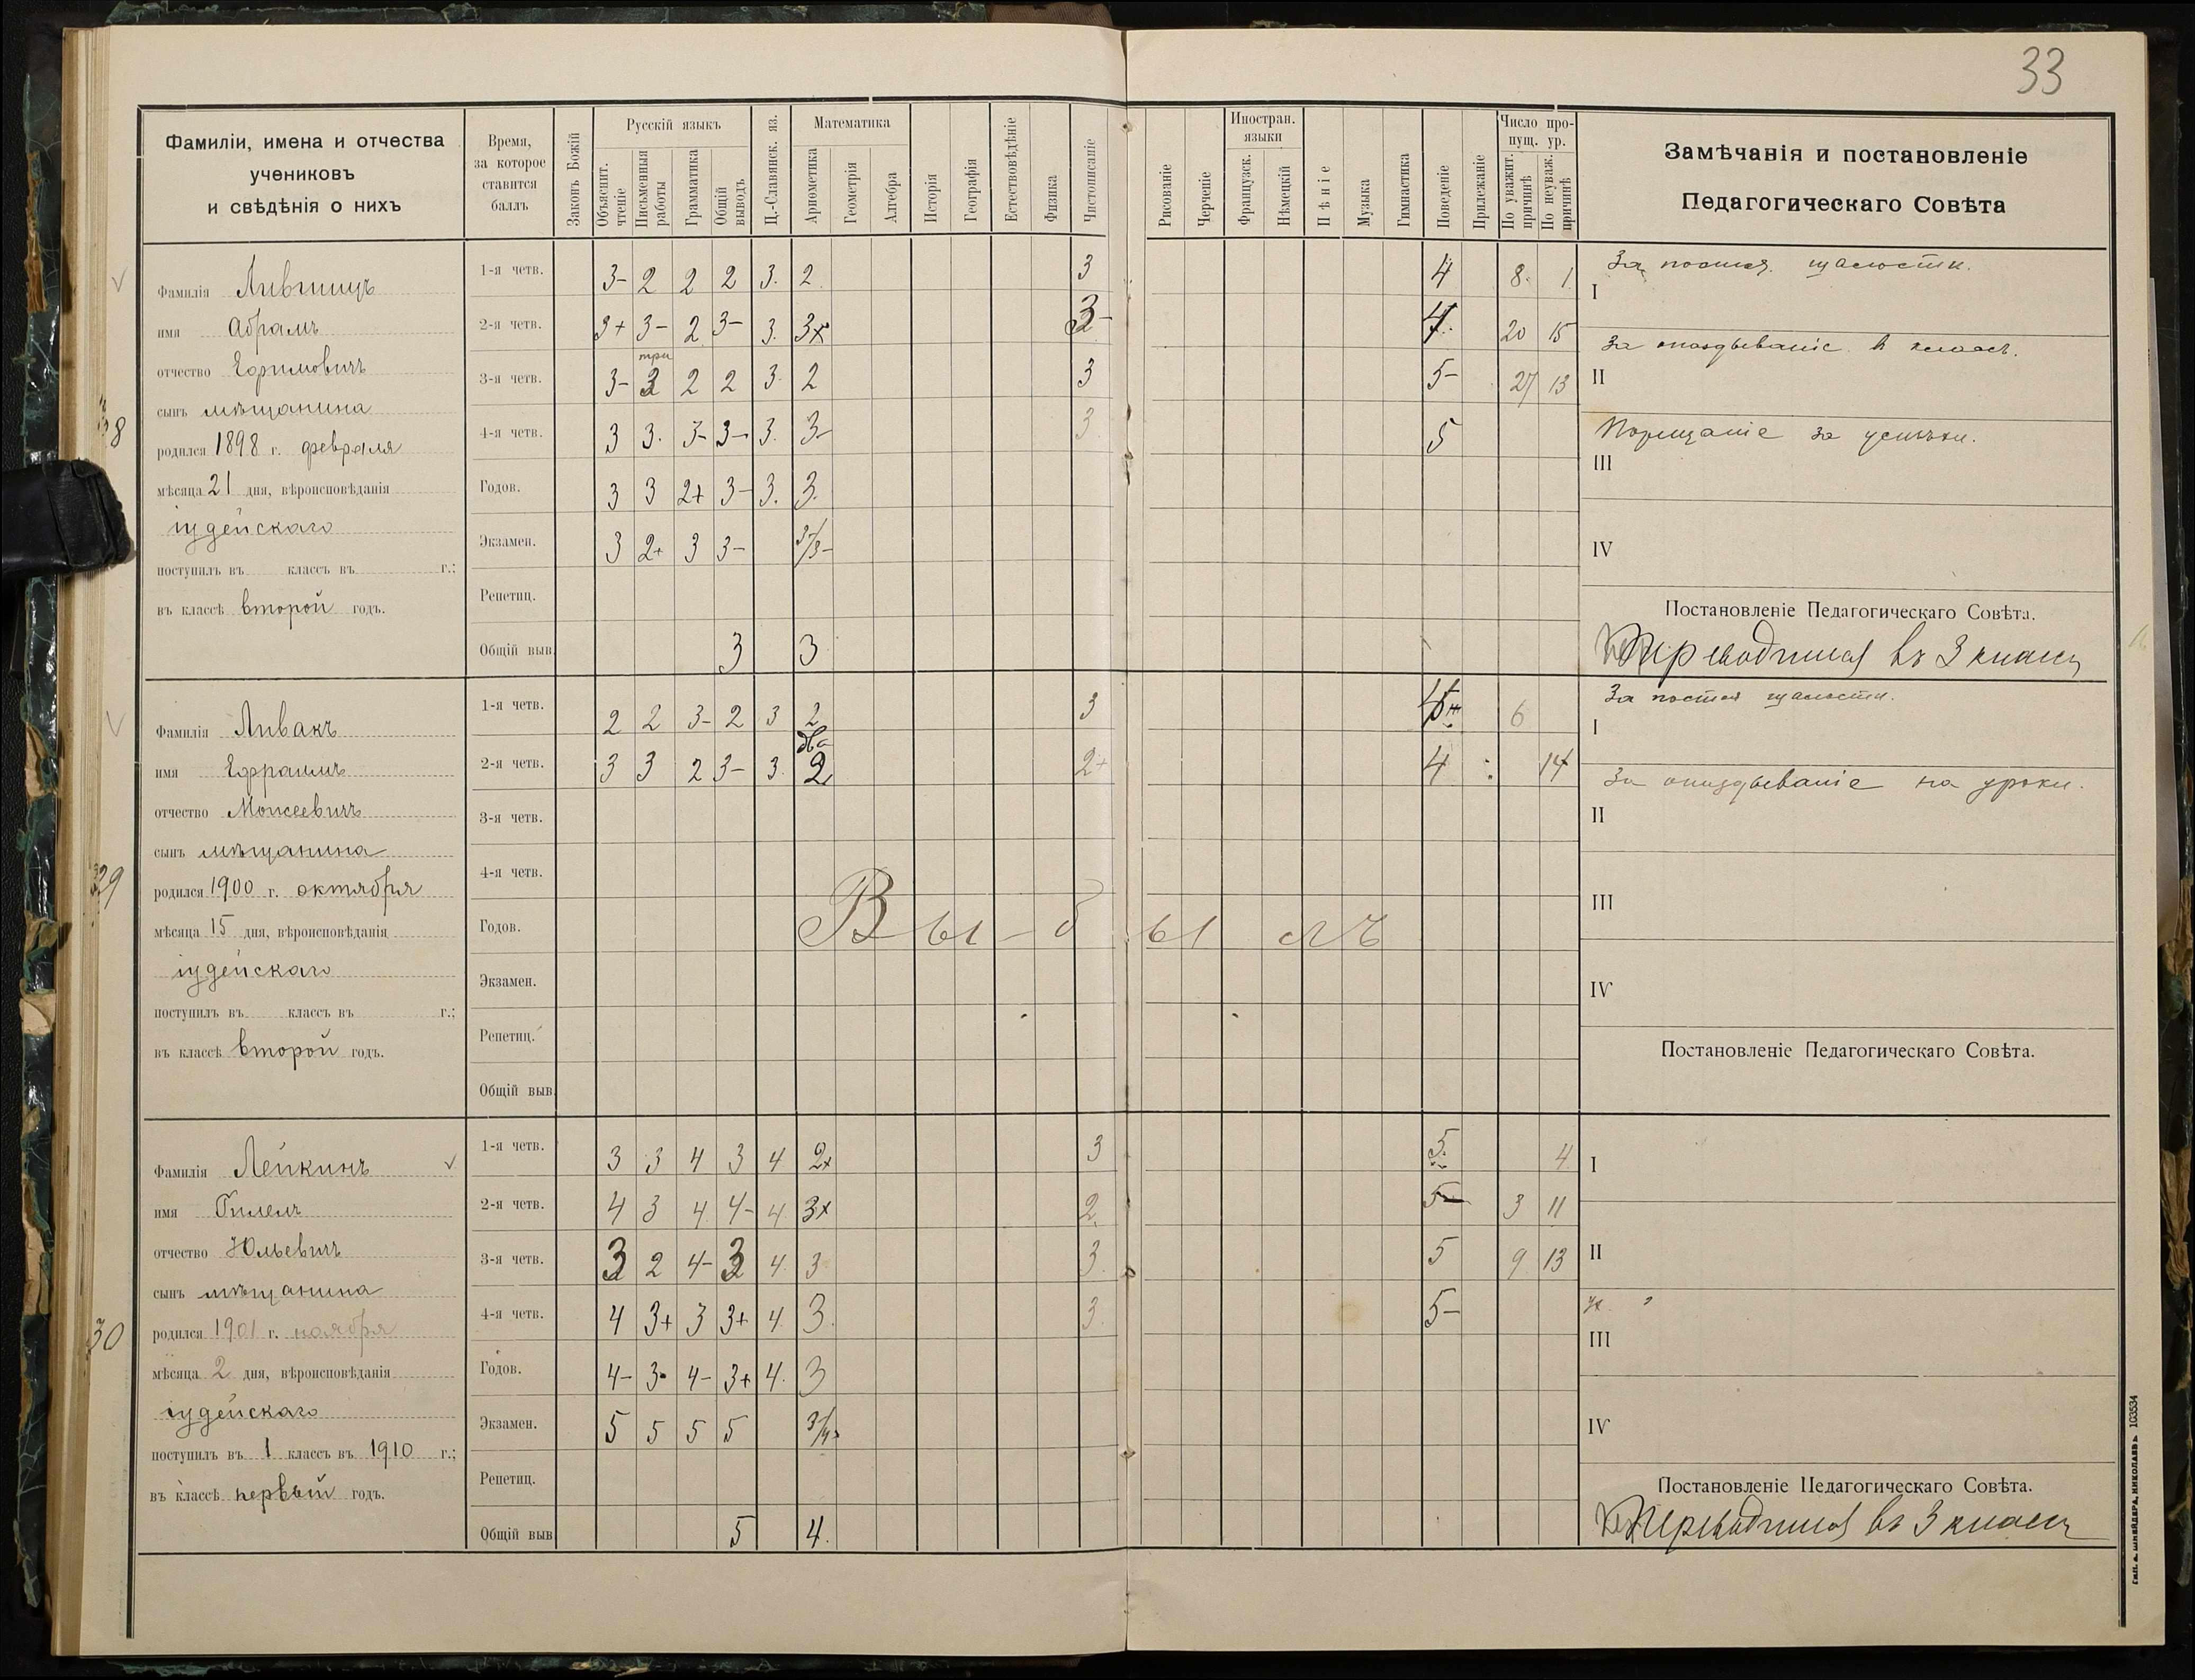 33
Фамиліи, имена и отчества
учениковъ
и свѣдѣнія о нихъ
Время,
за которое
ставится
баллъ
Законъ Божій
Русскій языкъ
Объяснит. чтеніе
Письменныя работы
Грамматика
Общій выводъ
Ц.-Славянск. яз.
Математика
Ариѳметика
Геометрія
Алгебра
Исторія
Географія
Естествовѣдѣніе
Физика
Чистописаніе
Рисованіе
Черченіе
Иностран. языки
Французск.
Нѣмецкій
Пѣніе
Музыка
Гимнастика
Поведеніе
Прилежаніе
Число про-
пущ. ур.
По уважит. причинѣ
По неуваж. причинѣ
Замѣчанія и постановленіе
Педагогическаго Совѣта
Фамилія Лившицъ
имя Абрамъ
отчество Ефимовичъ
сынъ мѣщанина
38
родился 1898 г. февраля
мѣсяца 21 дня, вѣроисповѣданія
іудейскаго
поступилъ въ классъ въ г.;
въ классѣ второй годъ.
1-я четв. 3- 2 2 2 3. 2 3 4 8. 1
2-я четв. 3+ 3- 2 3- 3. 3х 3- 4. 20 15
три
3-я четв. 3- 3 2 2 3 2 3 5- 27 13
4-я четв. 3 3. 3- 3- 3. 3- 3 5
Годов. 3 3 2+ 3- 3. 3.
Экзамен. 3 2+ 3 3- 3/3-
Репетиц.
Общій выв. 3 3
I За шалости.
II За опаздываніе в классъ.
III Порицаніе за успѣхи.
IV
Постановленіе Педагогическаго Совѣта.
Переводится въ 3 классъ
Фамилія Ливакъ
имя Ефраимъ
отчество Моисеевичъ
сынъ мѣщанина
29
родился 1900 г. октября
мѣсяца 15 дня, вѣроисповѣданія
іудейскаго
поступилъ въ классъ въ г.;
въ классѣ второй годъ.
1-я четв. 2 2 3- 2 3 2 3 6
два
2-я четв. 3 3 2 3- 3. 2 2+ 4 14
3-я четв.
4-я четв.
Годов.
Выбылъ
Экзамен.
Репетиц.
Общій выв.
I За шалости.
II За опаздываніе на уроки.
III
IV
Постановленіе Педагогическаго Совѣта.
Фамилія Лейкинъ
имя Гилель
отчество Юльевичъ
сынъ мѣщанина
30
родился 1901 г. ноября
мѣсяца 2 дня, вѣроисповѣданія
іудейскаго
поступилъ въ 1 классъ въ 1910 г.;
въ классѣ первый годъ.
1-я четв. 3 3 4 3 4 2х 3 5 4
2-я четв. 4 3 4 4- 4 3х 2 5- 3 11
3-я четв. 3 2 4- 3 4 3 3 5 9 13
4-я четв. 4 3+ 3 3+ 4 3 3 5-
Годов. 4- 3 4- 3+ 4. 3
Экзамен. 5 5 5 5 3/4-
Репетиц.
Общій выв. 5 4.
I
II
III
IV
Постановленіе Педагогическаго Совѣта.
Переводится въ 3 классъ
103534